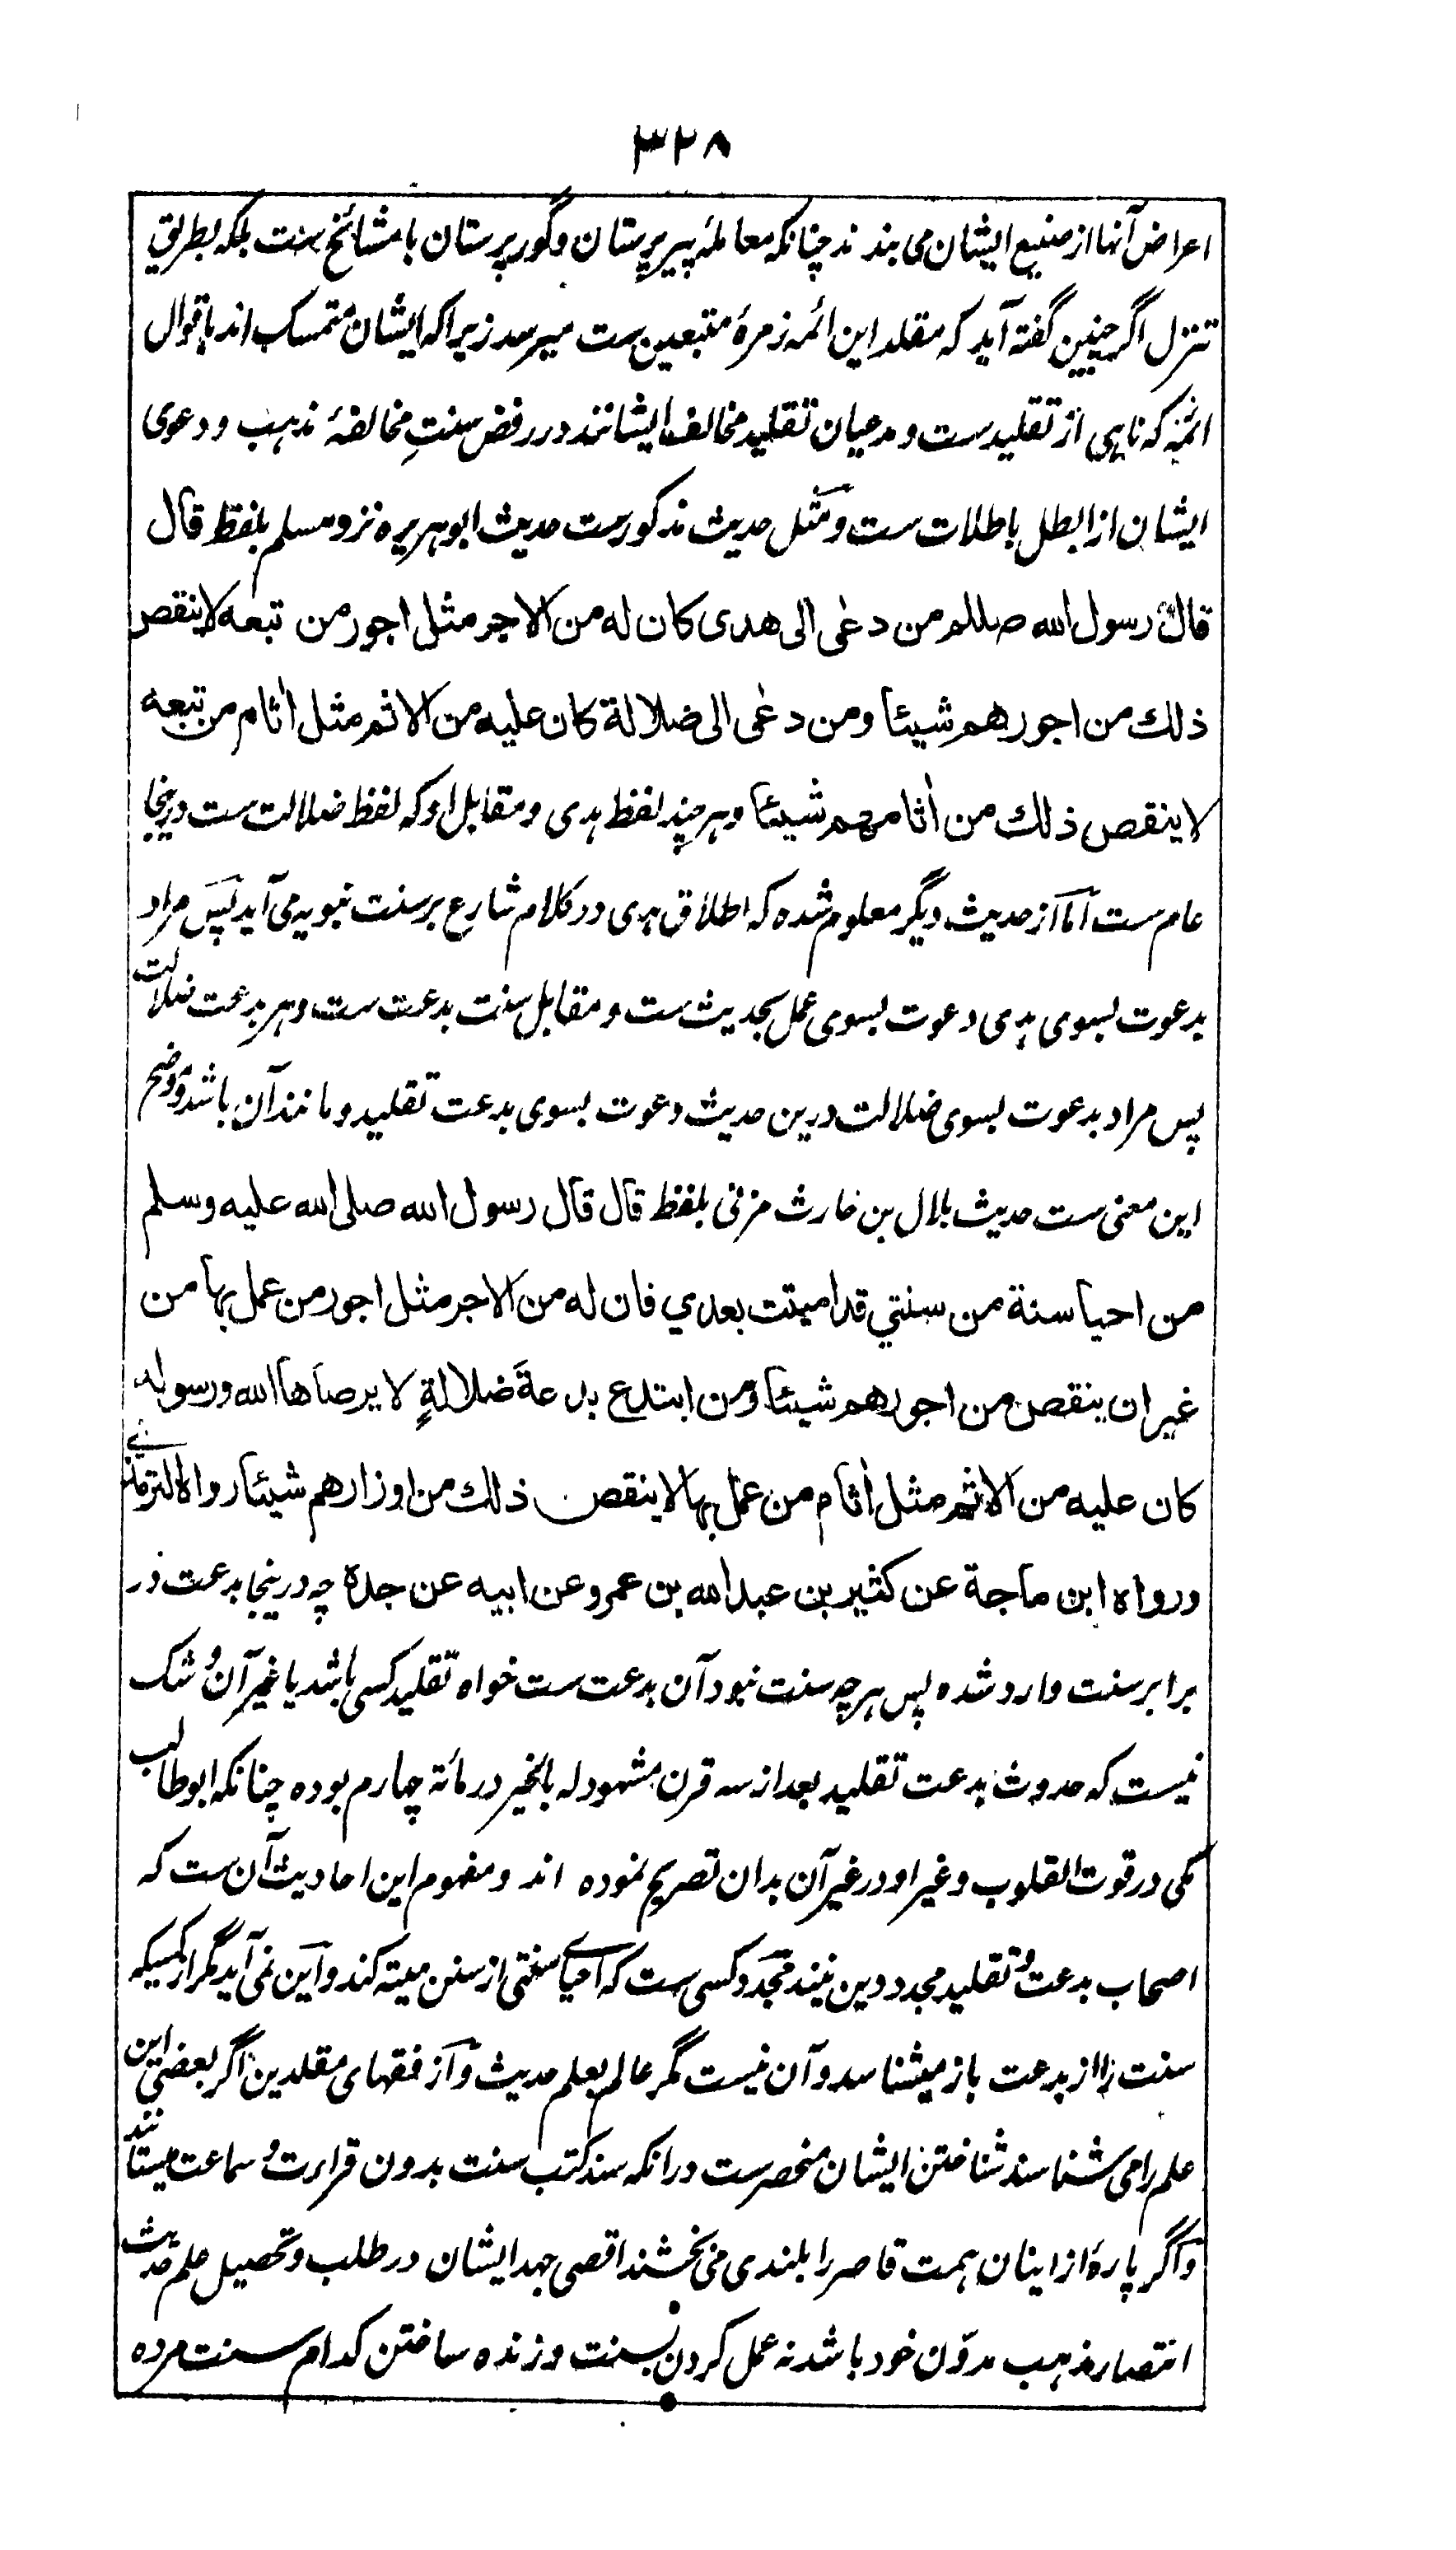 ۳۲۸
اعراض آنها از صنیع ایشان می بندند چنانکه معاملهٔ پیر پرستان و گور پرستان با مشائخ ست بلکه بطریق
تنزل اگر چنین گفته آید که مقلد این ائمه زمرهٔ متبعین ست میرسد زیراکه ایشان متمسک اند باقوال
ائمه که ناهی از تقلید ست و مدعیان تقلید مخالف ایشانند در رفض سنتِ مخالفهٔ مذهب و دعوی
ایشان از ابطل باطلات ست و مثل حدیث مذکورست حدیث ابوهریره نزد مسلم بلفظ قال
قال رسول الله صللم من دعی الی هدی کان له من الاجر مثل اجور من تبعه لا ینقص
ذلك من اجورهم شیئا ومن دعی الی ضلالة کان علیه من الاثم مثل اٰثام من تبعه
لا ینقص ذلك من اٰثامهم شیئا و هر چند لفظ هدی و مقابل او که لفظ ضلالت ست درینجا
عام ست اما از حدیث دیگر معلوم شده که اطلاق هدی در کلام شارع بر سنت نبویه می آید پس مراد
بدعوت بسوی هدی دعوت بسوی عمل بحدیث ست و مقابل سنت بدعت ست و هر بدعت ضلالت
پس مراد بدعوت بسوی ضلالت درین حدیث دعوت بسوی بدعت تقلید و مانند آن باشد و موضح
این معنی ست حدیث بلال بن حارث مزنی بلفظ قال قال رسول الله صلی الله علیه وسلم
من احیا سنة من سنتي قد امیتت بعدي فان له من الاجر مثل اجور من عمل بها من
غیر ان ینقص من اجورهم شیئا ومن ابتدع بدعةَ ضلالةٍ لا یرضاها الله ورسوله
کان علیه من الاثم مثل اٰثام من عمل بها لا ینقص ذلك من اوزارهم شیئا رواه الترمذي
ورواه ابن ماجة عن کثیر بن عبدالله بن عمرو عن ابیه عن جده چه درینجا بدعت در
برابر سنت وارد شده پس هر چه سنت نبود آن بدعت ست خواه تقلید کسی باشد یا غیر آن و شک
نیست که حدوث بدعت تقلید بعد از سه قرن مشهود له بالخیر در مائة چهارم بوده چنانکه ابوطالب
مکی در قوت القلوب و غیر او در غیر آن بدان تصریح نموده اند و مفهوم این احادیث آن ست که
اصحاب بدعت و تقلید مجدد دین نیند مجدد کسی ست که احیای سنتی از سنن میته کند و این نمی آید مگر از کسیکه
سنت را از بدعت باز میشناسد و آن نیست مگر عالم بعلم حدیث و از فقهای مقلدین اگر بعضی این
علم را می شناسند شناختن ایشان منحصرست در انکه سند کتب سنت بدون قراءت و سماعت میستانند
و اگر پارهٔ از اینان همت قاصر را بلندی می بخشند اقصی جهد ایشان در طلب و تحصیل علم حدیث
انتصار مذهب مدوّن خود باشد نه عمل کردن بسنت و زنده ساختن کدام سنت مرده